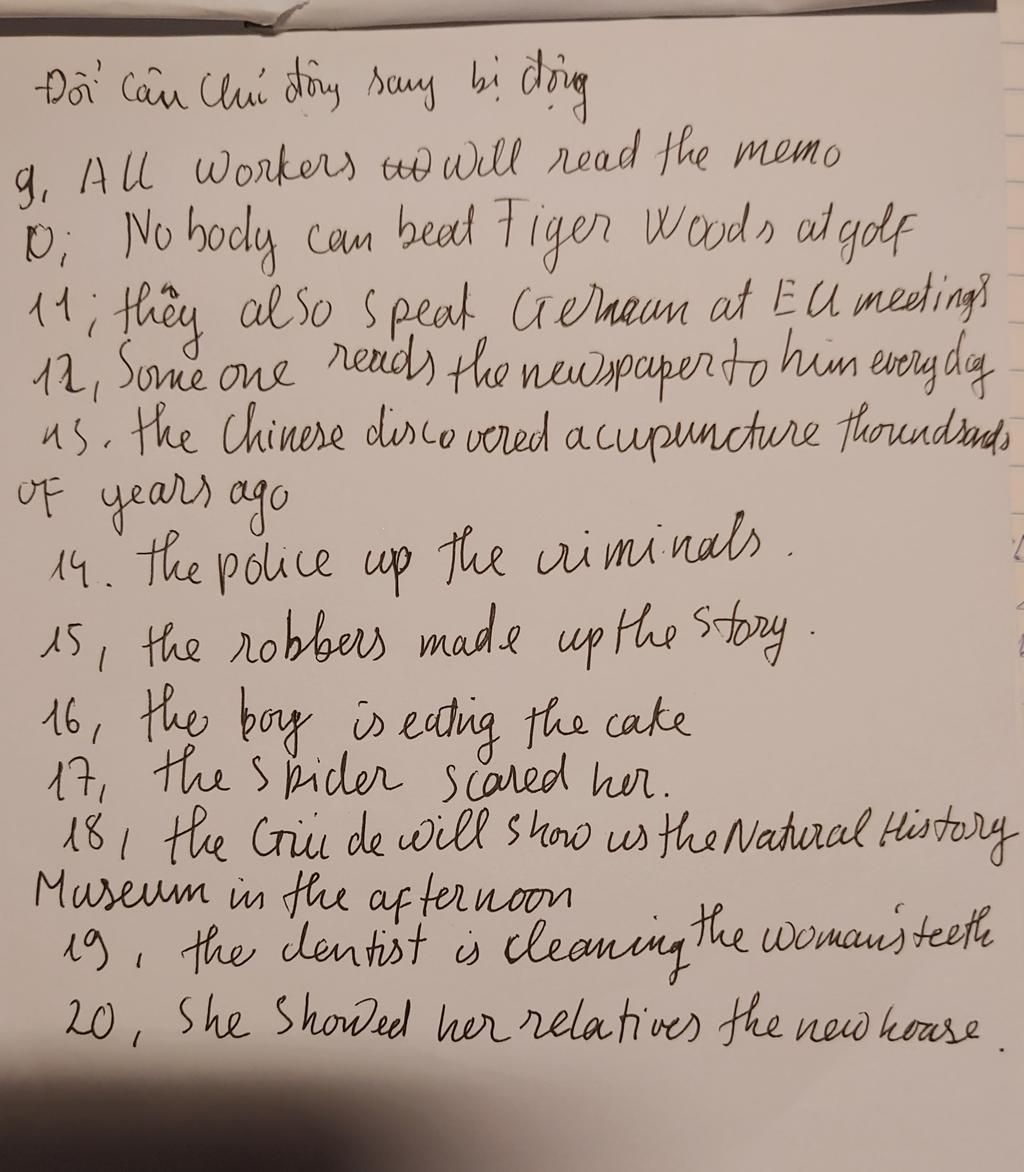 Đổi Câu Chủ động sang bị động
9, All workers will read the memo
10; Nobody can beat Tiger Woods at golf
11; they also speak German at EU meetings
12, Some one reads the newspaper to him every day
13. the Chinese discovered acupuncture thoundsands
of years ago
14. the police up the criminals.
15, the robbers made up the story.
16, the boy is eating the cake
17, the spider scared her.
18, the Guide will show us the Natural History
Museum in the afternoon
19, the dentist is cleaning the woman's teeth
20, She showed her relatives the new house.